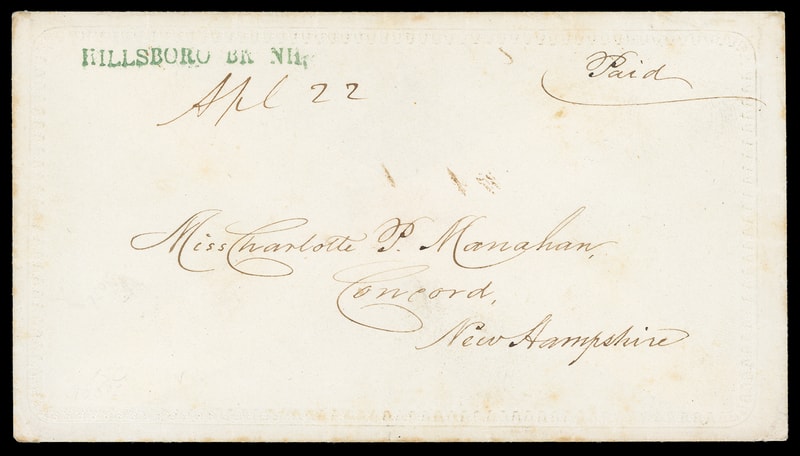 HILLSBORO BR NH.
Apl 22
Paid
Miss Charlotte P. Manahan,
Concord,
New Hampshire